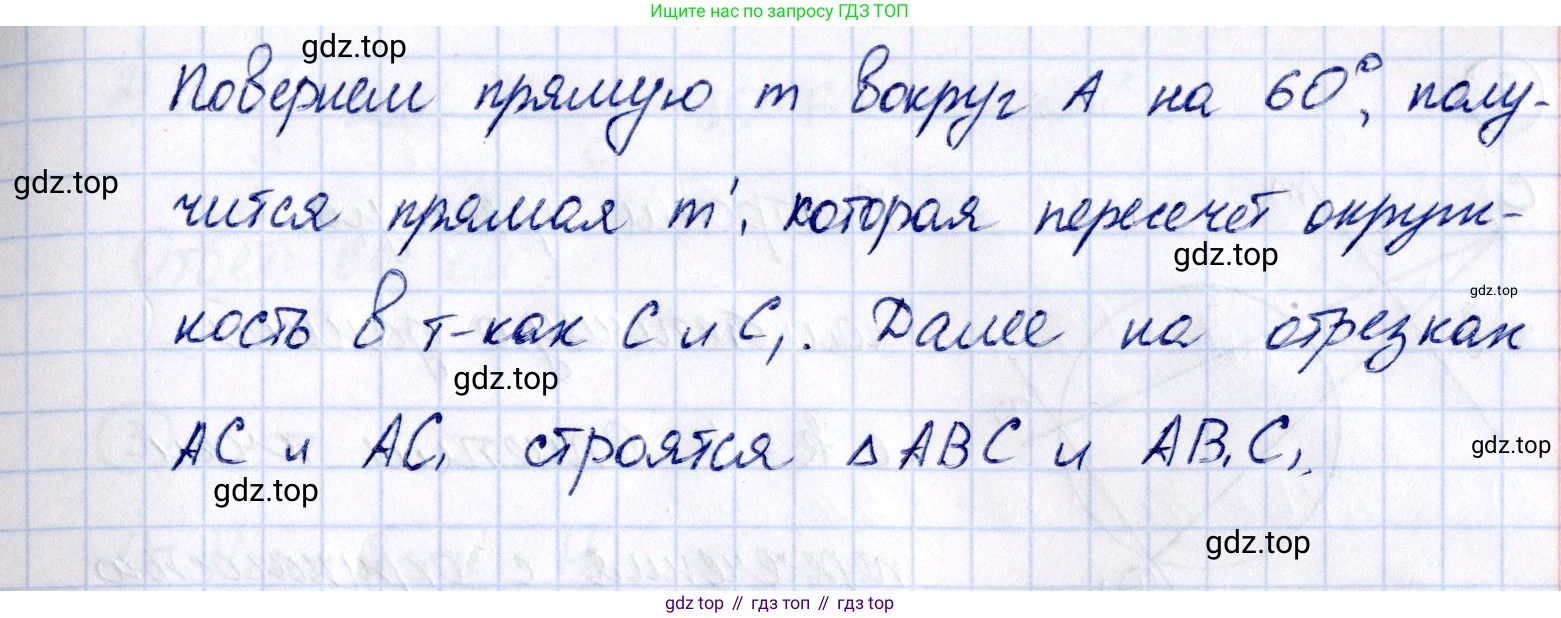 Ищите нас по запросу ГДЗ ТОП
gdz.top
Повернем прямую m вокруг A на 60°, полу-
gdz.top
чится прямая m', которая пересечет окруж-
gdz.top
gdz.top
ность в т-ках C и C₁. Далее на отрезках
gdz.top
AC и AC₁ строятся △ABC и AB₁C₁.
gdz.top
gdz.top
gdz.top
gdz top // гдз топ // гдз top